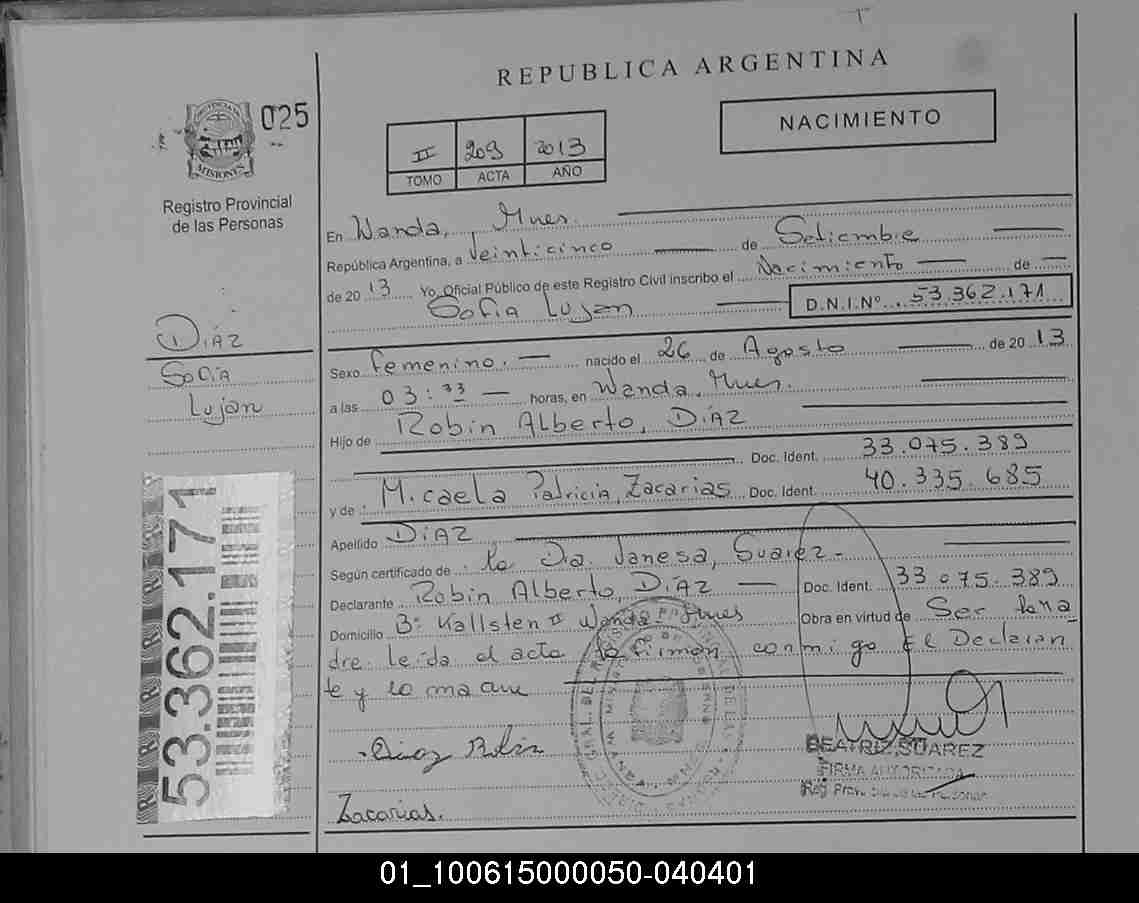 REPUBLICA ARGENTINA
025
MISIONES
Registro Provincial
de las Personas
II 209 2013
TOMO ACTA AÑO
NACIMIENTO
En Wanda, Mnes.
República Argentina, a Veinticinco de Setiembre
de 2013 Yo, Oficial Público de este Registro Civil inscribo el Nacimiento de
Sofia Lujan D.N.I.Nº 53.362.171
DíAZ
SOFIA
Lujan
Sexo femenino. nacido el 26 de Agosto de 2013
a las 03:33 horas, en Wanda, Mnes.
Hijo de Robin Alberto, DíAZ
Doc. Ident. 33.075.389
y de Micaela Patricia, Zacarias Doc. Ident. 40.335.685
Apellido DíAZ
Según certificado de la Dra. Vanesa, Suarez
Declarante Robin Alberto, DíAZ Doc. Ident. 33075.389
Domicilio Bº Kallsten II Wanda Mnes Obra en virtud de Ser
dre. Leída el acta la firman conmigo El Declaran
te y la madre
Diaz Robin
BEATRIZ SUAREZ
FIRMA AUTORIZADA
Zacarias.
53.362.171
01_100615000050-040401